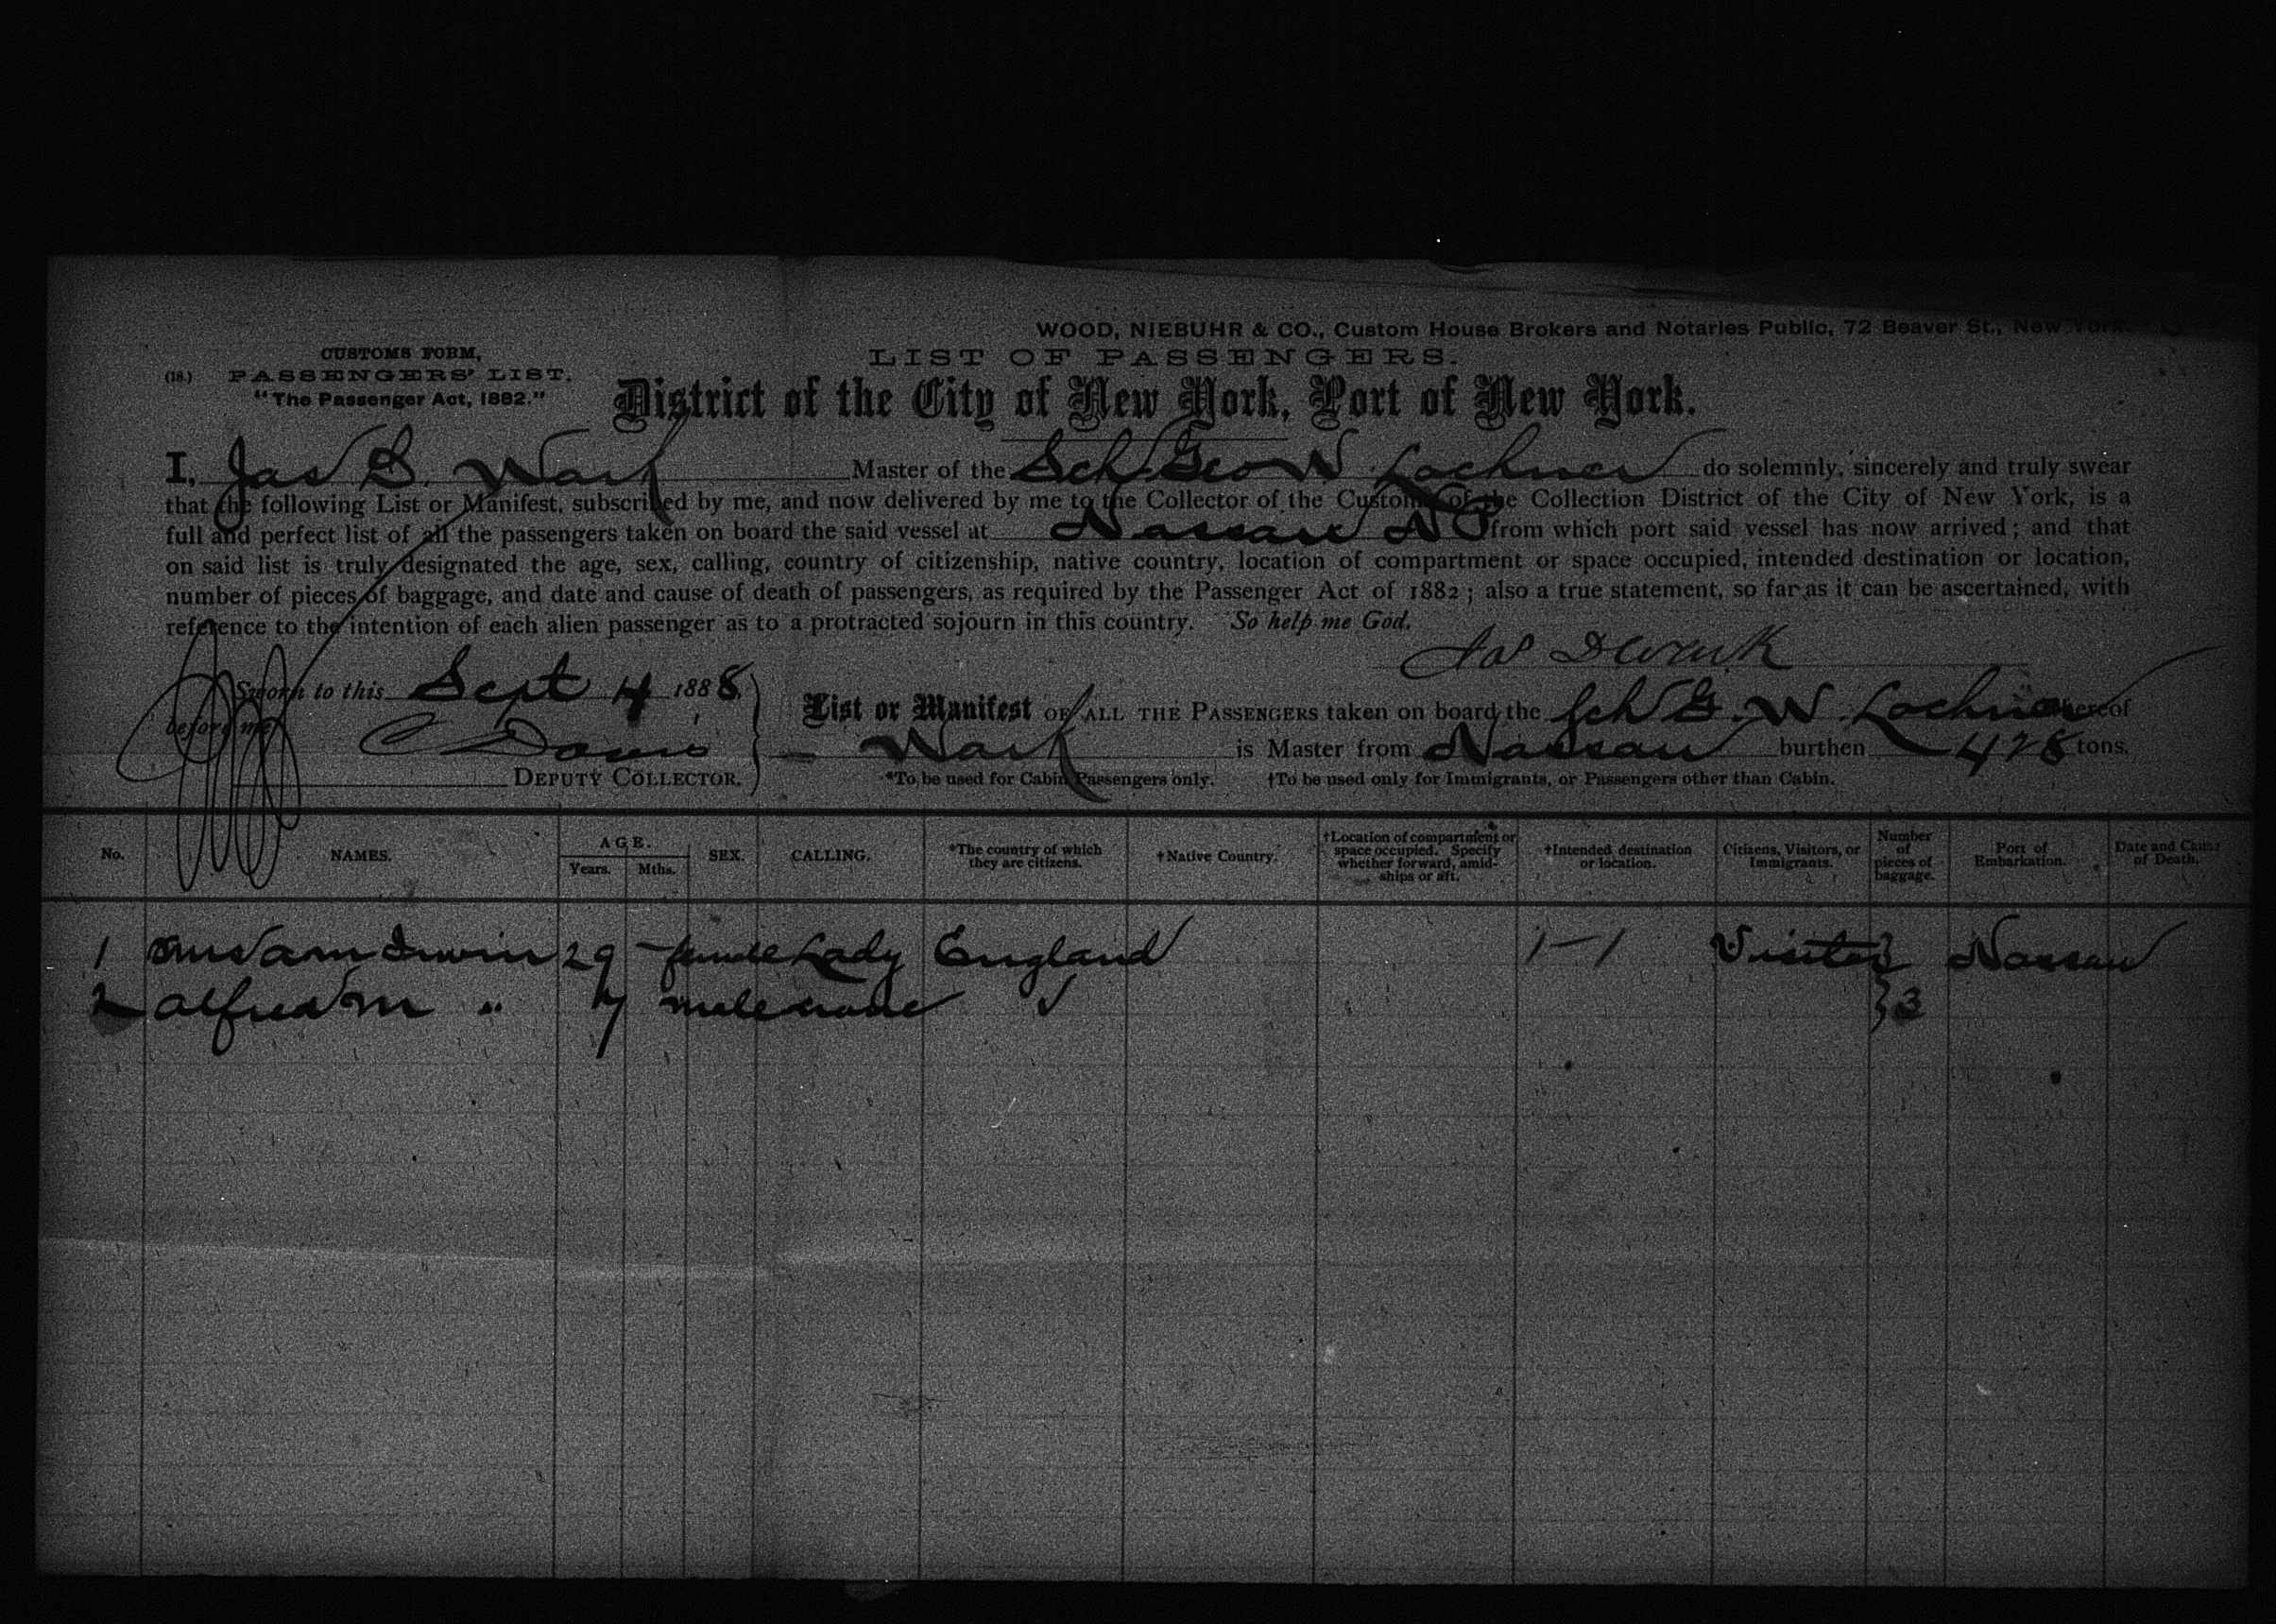 WOOD, NIEBUHR & CO., Custom House Brokers and Notaries Public, 72 Beaver St., New York.
CUSTOMS FORM,
(18.) PASSENGERS' LIST,
"The Passenger Act, 1882."
LIST OF PASSENGERS.
District of the City of New York, Port of New York.
I, Jas D. Wark Master of the Sch Geo W Lochner do solemnly, sincerely and truly swear
that the following List or Manifest, subscribed by me, and now delivered by me to the Collector of the Customs of the Collection District of the City of New York, is a
full and perfect list of all the passengers taken on board the said vessel at Nassau N P from which port said vessel has now arrived; and that
on said list is truly designated the age, sex, calling, country of citizenship, native country, location of compartment or space occupied, intended destination or location,
number of pieces of baggage, and date and cause of death of passengers, as required by the Passenger Act of 1882; also a true statement, so far as it can be ascertained, with
reference to the intention of each alien passenger as to a protracted sojourn in this country. So help me God.
Jas D Wark
Sworn to this Sept 4 1888,
before me
C Davis
DEPUTY COLLECTOR.
List or Manifest OF ALL THE PASSENGERS taken on board the Sch G. W. Lochner whereof
Wark is Master from Nassau burthen 428 tons.
*To be used for Cabin Passengers only. †To be used only for Immigrants, or Passengers other than Cabin.
No. NAMES. AGE. Years. Mths. SEX. CALLING. *The country of which they are citizens. †Native Country. †Location of compartment or space occupied. Specify whether forward, amidships or aft. †Intended destination or location. Citizens, Visitors, or Immigrants. Number of pieces of baggage. Port of Embarkation. Date and Cause of Death.
1 Irwin 29 – female Lady England 1–1 Visitor Nassau
2 Alfred M " 7 male none ✓ 3